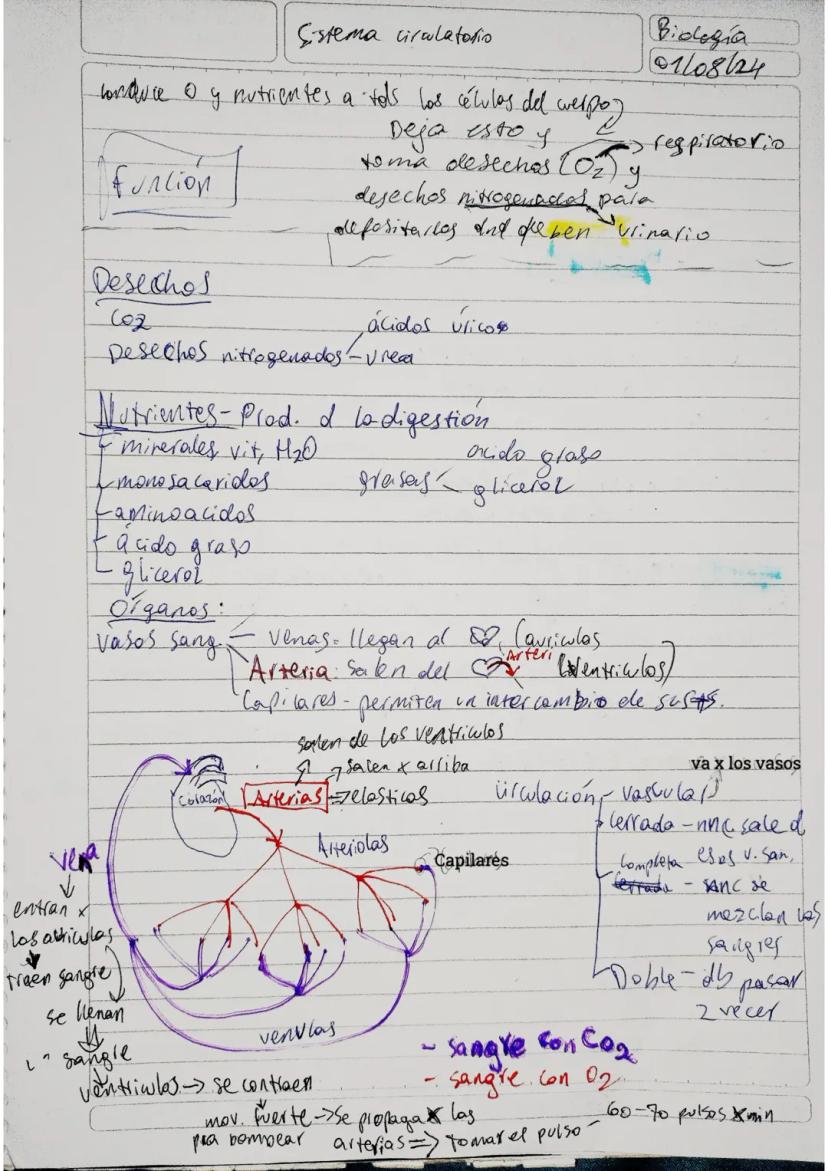 Sistema circulatorio
Biología
01/08/24
conduce O y nutrientes a tds las células del cuerpo
Deja esto y
respiratorio
Función
toma desechos (O2) y
desechos nitrogenados para
depositarlos dnd deben urinario
Desechos
CO2
ácidos úricos
Desechos nitrogenados - urea
Nutrientes - Prod. d la digestión
minerales, vit, H2O
ácido graso
monosacaridos
grasas
glicerol
aminoacidos
ácido graso
glicerol
Órganos:
vasos sang. - venas = llegan al (auriculas
Arteri
Arteria: salen del (Ventriculos)
Capilares - permiten un intercambio de susts.
salen de los ventriculos
salen x arriba
va x los vasos
Corazón
Arterias
elasticas
circulación
vascular
Arteriolas
cerrada - nnc sale d
esos v. san.
Capilares
vena
completa
cerrada - sanc se
mezclan las
sangres
entran x
las auriculas
traen sangre
Doble - db pasar
2 vecer
se llenan
venulas
sangre
- sangre con CO2
ventriculos → se contraen
- sangre con O2
mov. fuerte → se propaga x las
60-70 pulsos x min
pra bombear
arterias ⇒ tomar el pulso